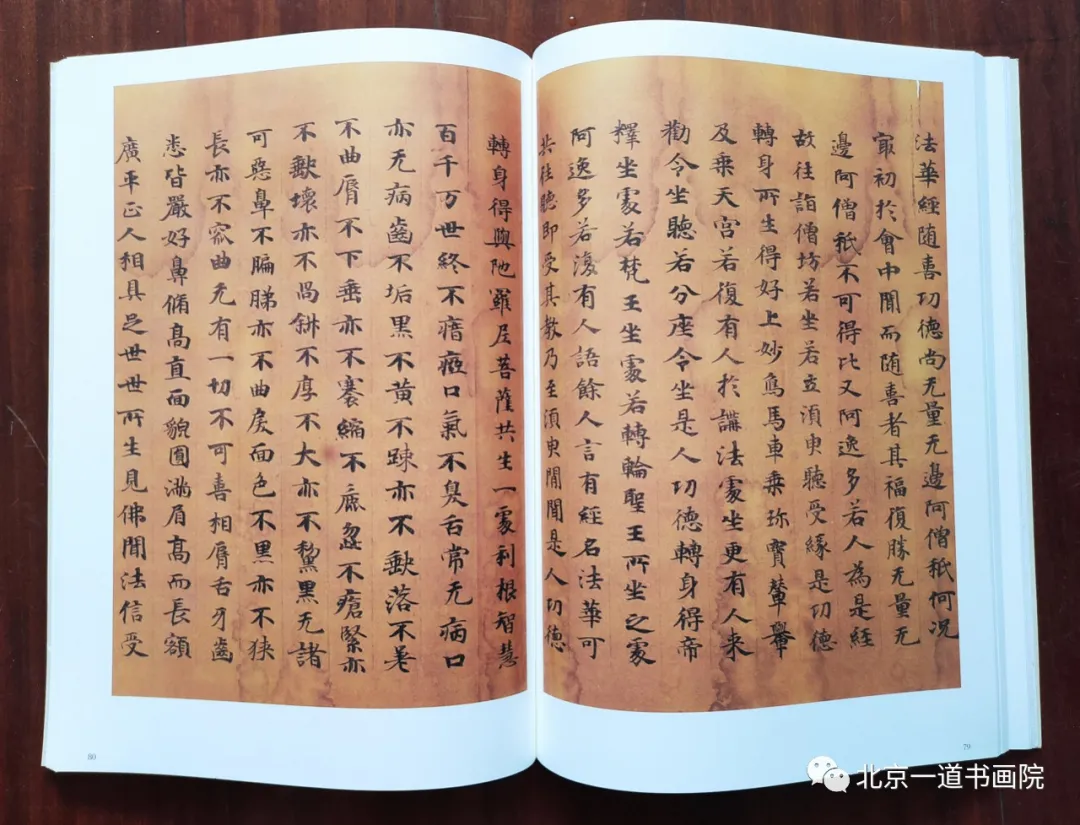 法華經随喜功德尚无量无邊阿僧祇何况
冣初於會中聞而随喜者其福復勝无量无
邊阿僧祇不可得比又阿逸多若人為是經
故往詣僧坊若坐若立須臾聽受緣是功德
轉身所生得好上妙象馬車乗珎寶輦轝
及乗天宫若復有人於講法處坐更有人来
勸令坐聽若分座令坐是人功德轉身得帝
釋坐處若梵王坐處若轉輪聖王所坐之處
阿逸多若復有人語餘人言有經名法華可
共往聽即受其教乃至須臾閒聞是人功德
轉身得與陁羅尼菩薩共生一處利根智慧
百千万世終不瘖瘂口氣不臭舌常无病口
亦无病齒不垢黑不黄不踈亦不缺落不差
不曲脣不下垂亦不褰縮不麁澁不瘡緊亦
不缺壞亦不咼斜不厚不大亦不黧黑无諸
可惡鼻不匾㔸亦不曲戾面色不黑亦不狭
長亦不窊曲无有一切不可喜相脣舌牙齒
悉皆嚴好鼻脩髙直面貌圓滿眉髙而長額
廣平正人相具足世世所生見佛聞法信受
80
79
北京一道书画院